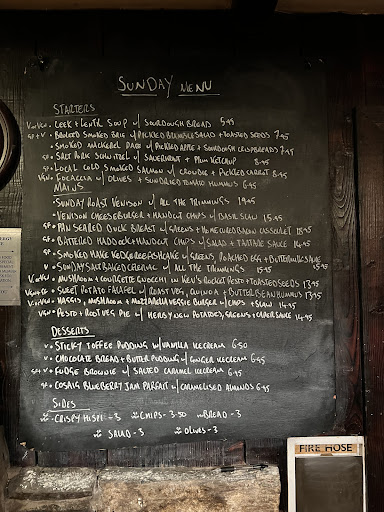 SUNDAY MENU
STARTERS
LEEK + LENTIL SOUP w/ SOURDOUGH BREAD 5.95
SMOKED BRIE w/ PICKLED BRAMBLE SALAD + TOASTED SEEDS 7.95
• SMOKED MACKEREL PATE w/ PICKLED APPLE + SOURDOUGH CRISPBREADS 7.95
• SALT PORK SCHNITZEL w/ SAUERKRAUT + PLUM KETCHUP 8.95
LOCAL COLD SMOKED SALMON w/ CROWDIE + PICKLED CARROT 8.95
FOCACCIA w/ OLIVES + SUNDRIED TOMATO HUMMUS 6.95
MAINS
• SUNDAY ROAST VENISON w/ ALL THE TRIMMINGS 19.95
• VENISON CHEESEBURGER + HANDCUT CHIPS w/ BASIL SLAW 15.95
• PAN SEARED DUCK BREAST w/ GREENS + HOME CURED BACON CASSOULET 18.95
• BATTERED HADDOCK + HANDCUT CHIPS w/ SALAD + TARTARE SAUCE 14.95
• SMOKED HAKE KEDGEREE FISHCAKE w/ GREENS POACHED EGG + BUTTERMILK SAUCE 15.95
V • SUNDAY SALT BAKED CELERIAC w/ ALL THE TRIMMINGS 15.95
• MUSHROOM + COURGETTE GNOCCHI IN KEV'S ROCKET PESTO + TOASTED SEEDS 13.95
• SWEET POTATO FALAFEL w/ ROAST VEG, QUINOA + BUTTERBEAN HUMMUS 13.95
• HAGGIS, MUSHROOM + MOZZARELLA VEGGIE BURGER w/ CHIPS + SLAW 14.95
• PESTO + ROOT VEG PIE w/ HERBY NEW POTATOES, GREENS + CIDER SAUCE 14.95
DESSERTS
V • STICKY TOFFEE PUDDING w/ VANILLA ICECREAM 6.50
V • CHOCOLATE BREAD + BUTTER PUDDING w/ GINGER ICECREAM 6.95
• FUDGE BROWNIE w/ SALTED CARAMEL ICECREAM 6.95
BLUEBERRY JAM PARFAIT w/ CARAMELISED ALMONDS 6.95
SIDES
CRISPY HISPI - 3 CHIPS - 3.50 BREAD - 3
SALAD - 3 OLIVES - 3
FIRE HOSE